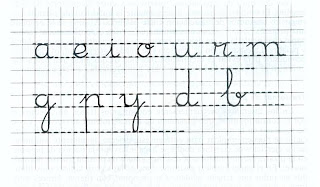 a e i o u r m
g p y d b